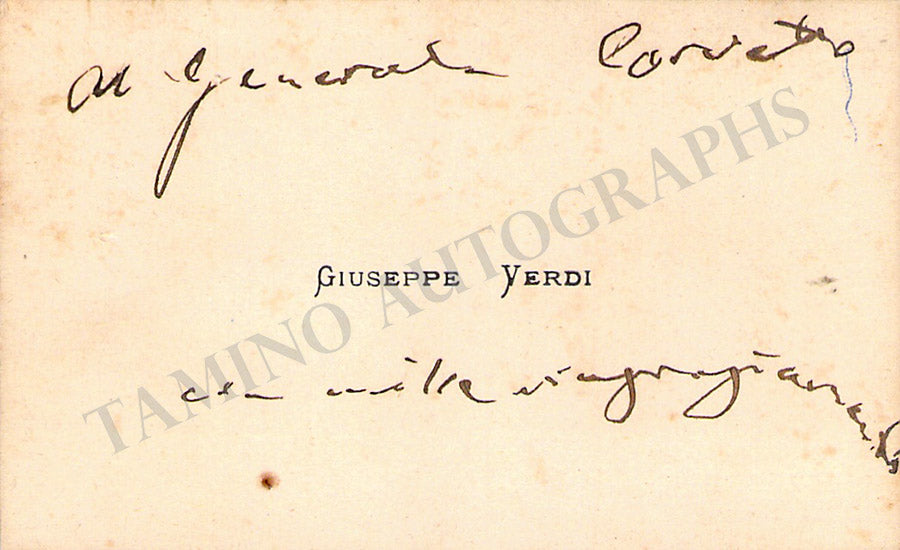 Al Generale Corvetto
TAMINO AUTOGRAPHS
GIUSEPPE VERDI
con mille ringraziamenti